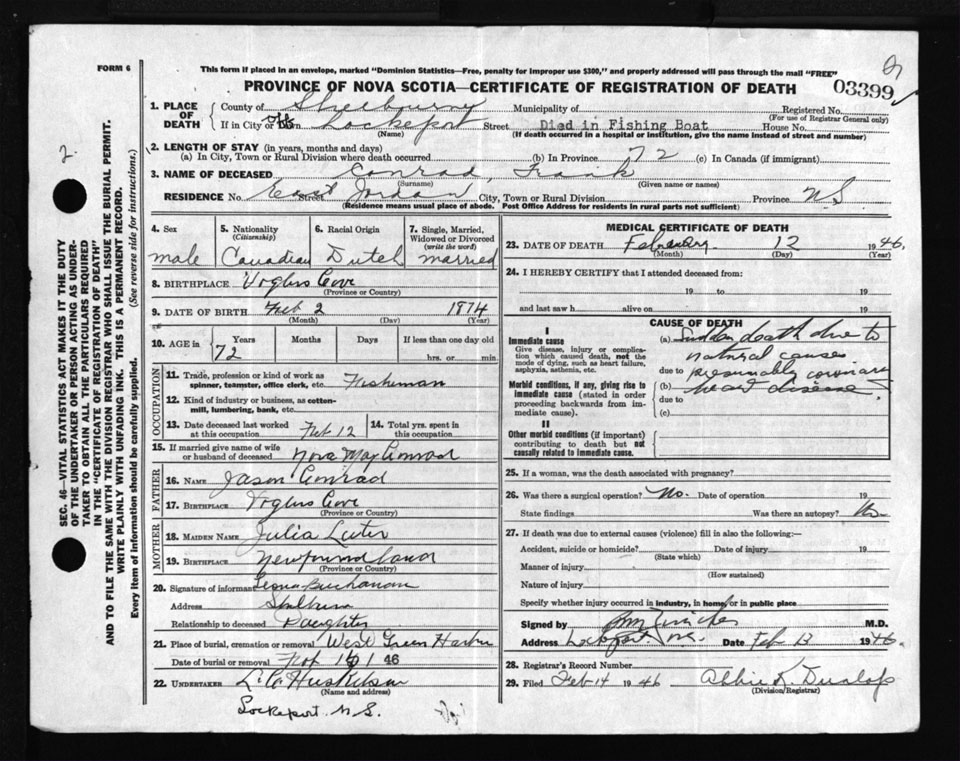 FORM 6
This form if placed in an envelope, marked "Dominion Statistics—Free, penalty for improper use $300," and properly addressed will pass through the mail "FREE"
PROVINCE OF NOVA SCOTIA—CERTIFICATE OF REGISTRATION OF DEATH
03399
SEC. 46—VITAL STATISTICS ACT MAKES IT THE DUTY
OF THE UNDERTAKER OR PERSON ACTING AS UNDER-
TAKER TO OBTAIN ALL THE PARTICULARS REQUIRED
IN THE "CERTIFICATE OF REGISTRATION OF DEATH"
AND TO FILE THE SAME WITH THE DIVISION REGISTRAR WHO SHALL ISSUE THE BURIAL PERMIT.
WRITE PLAINLY WITH UNFADING INK. THIS IS A PERMANENT RECORD.
Every item of information should be carefully supplied. (See reverse side for instructions.)
2
1. PLACE OF DEATH
County of Shelbourne Municipality of Registered No.
(For use of Registrar General only)
If in City or Town Lockeport Street Died in Fishing Boat House No.
(Name) (If death occurred in a hospital or institution, give the name instead of street and number)
2. LENGTH OF STAY (in years, months and days)
(a) In City, Town or Rural Division where death occurred (b) In Province 72 (c) In Canada (if immigrant)
3. NAME OF DECEASED Conrad, Frank
(Surname) (Given name or names)
RESIDENCE No. Street East Jordan City, Town or Rural Division Province N.S.
(Residence means usual place of abode. Post Office Address for residents in rural parts not sufficient)
4. Sex male
5. Nationality (Citizenship) Canadian
6. Racial Origin Dutch
7. Single, Married, Widowed or Divorced (write the word) married
8. BIRTHPLACE Voglers Cove
(Province or Country)
9. DATE OF BIRTH Feb 2 1874
(Month) (Day) (Year)
10. AGE in 72 Years Months Days If less than one day old
hrs. or min.
OCCUPATION
11. Trade, profession or kind of work as spinner, teamster, office clerk, etc. Fisherman
12. Kind of industry or business, as cotten-mill, lumbering, bank, etc.
13. Date deceased last worked at this occupation Feb 12
14. Total yrs. spent in this occupation
15. If married give name of wife or husband of deceased Nova May Conrad
FATHER
16. NAME Jason Conrad
17. BIRTHPLACE Voglers Cove
(Province or Country)
MOTHER
18. MAIDEN NAME Julia
19. BIRTHPLACE Newfoundland
(Province or Country)
20. Signature of informant Leona Buchanan
Address
Relationship to deceased Daughter
21. Place of burial, cremation or removal West Green Harbor
Date of burial or removal 46
22. UNDERTAKER L. Co. Huskilson
(Name and address)
Lockeport N.S.
MEDICAL CERTIFICATE OF DEATH
23. DATE OF DEATH February 12 1946.
(Month) (Day) (Year)
24. I HEREBY CERTIFY that I attended deceased from:
19 to 19
and last saw h alive on 19
CAUSE OF DEATH
I
Immediate cause
Give disease, injury or complication which caused death, not the mode of dying, such as heart failure, asphyxia, asthenia, etc.
(a) Sudden death due to
natural causes
due to presumably coronary
Morbid conditions, if any, giving rise to immediate cause (stated in order proceeding backwards from immediate cause).
(b) heart disease
due to
(c)
II
Other morbid conditions (if important) contributing to death but not causally related to immediate cause.
25. If a woman, was the death associated with pregnancy?
26. Was there a surgical operation? No. Date of operation 19
State findings Was there an autopsy? No
27. If death was due to external causes (violence) fill in also the following:
Accident, suicide or homicide? Date of injury 19
(State which)
Manner of injury
(How sustained)
Nature of injury
Specify whether injury occurred in industry, in home, or in public place
Signed by M.D.
Address Lockeport N.S. Date Feb 13 1946.
28. Registrar's Record Number
29. Filed Feb 14 1946 Abbie K. Dunlop
(Division Registrar)